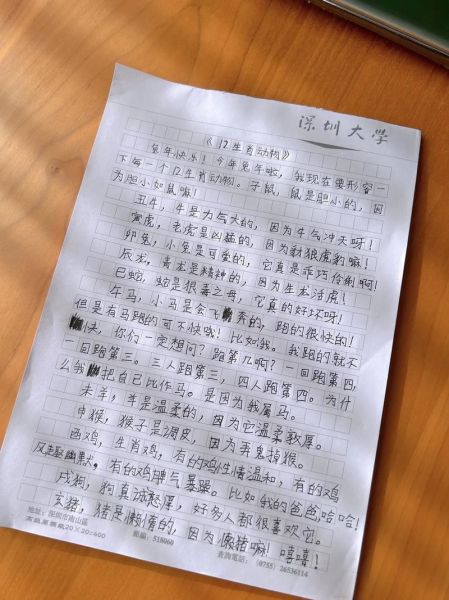 深圳大学
《12生肖动物》
兔年快乐！今年兔年啦，我现在要形容一
下每一个12生肖动物。子鼠，鼠是胆小的，因
为胆小如鼠嘛！
丑牛，牛是力气大的，因为牛气冲天呀！
寅虎，老虎是凶猛的，因为豺狼虎豹嘛！
卯兔，小兔是可爱的，它真是乖巧伶俐啊！
辰龙，青龙是精神的，因为生龙活虎！
巳蛇，蛇是狠毒之母，它真的好坏呀！
午马，小马是会飞奔的，跑的很快的！
但是有马跑的可不快哦！比如我。我跑的就不
快，你们一定想问？跑第几啊？一回跑第四，
一回跑第三。三人跑第三，四人跑第四。为什
么我把自己比作马。是因为我属马。
未羊，羊是温柔的，因为它温柔敦厚。
申猴，猴子是调皮，因为弄鬼掉猴。
酉鸡，生肖鸡，有的鸡性情温和，有的鸡
风趣幽默，有的鸡脾气暴躁。比如我的爸爸，哈哈！
戌狗，狗真诚憨厚，好多人都很喜欢它。
亥猪，猪是懒惰的，因为懒猪嘛！嘻嘻！
地址：深圳市南山區
20×20=600
郵編：518060
查詢電話：（0755）26536114